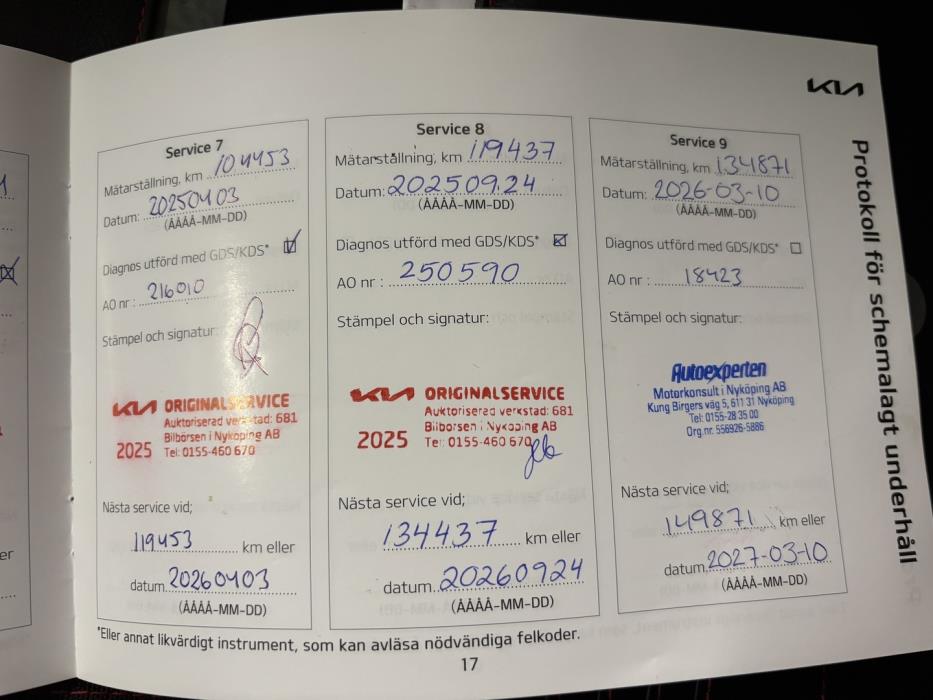 KIA
Protokoll för schemalagt underhåll
Service 7
Mätarställning, km 104453
Datum: 20250403
(ÅÅÅÅ-MM-DD)
Diagnos utförd med GDS/KDS*
AO nr : 216010
Stämpel och signatur:
KIA ORIGINALSERVICE
Auktoriserad verkstad: 681
Bilbörsen i Nyköping AB
2025 Tel: 0155-460 670
Nästa service vid;
119453 km eller
datum 20260403
(ÅÅÅÅ-MM-DD)
Service 8
Mätarställning, km 119437
Datum: 20250924
(ÅÅÅÅ-MM-DD)
Diagnos utförd med GDS/KDS*
AO nr : 250590
Stämpel och signatur:
KIA ORIGINALSERVICE
Auktoriserad verkstad: 681
Bilbörsen i Nyköping AB
2025 Tel: 0155-460 670
Nästa service vid;
134437 km eller
datum 20260924
(ÅÅÅÅ-MM-DD)
Service 9
Mätarställning, km 134871
Datum: 2026-03-10
(ÅÅÅÅ-MM-DD)
Diagnos utförd med GDS/KDS*
AO nr : 18423
Stämpel och signatur:
Autoexperten
Motorkonsult i Nyköping AB
Kung Birgers väg 5, 611 31 Nyköping
Tel: 0155-28 35 00
Org.nr. 556926-5886
Nästa service vid;
149871 km eller
datum 2027-03-10
(ÅÅÅÅ-MM-DD)
*Eller annat likvärdigt instrument, som kan avläsa nödvändiga felkoder.
17
er